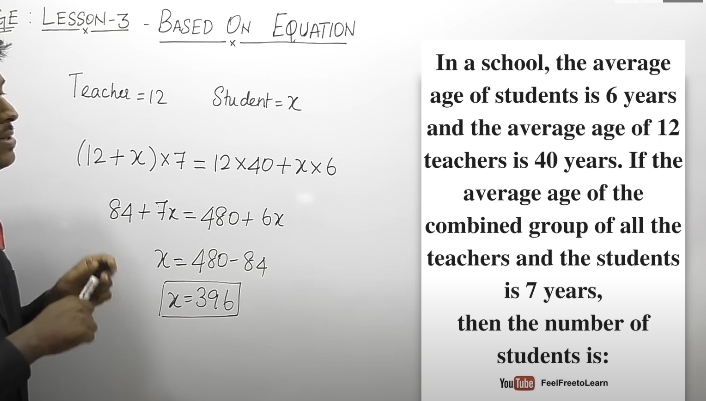 LESSON-3 - BASED ON EQUATION
Teacher = 12 Student = x
(12+x)×7 = 12×40+x×6
84+7x = 480+6x
x = 480-84
x=396
In a school, the average
age of students is 6 years
and the average age of 12
teachers is 40 years. If the
average age of the
combined group of all the
teachers and the students
is 7 years,
then the number of
students is:
YouTube FeelFreetoLearn